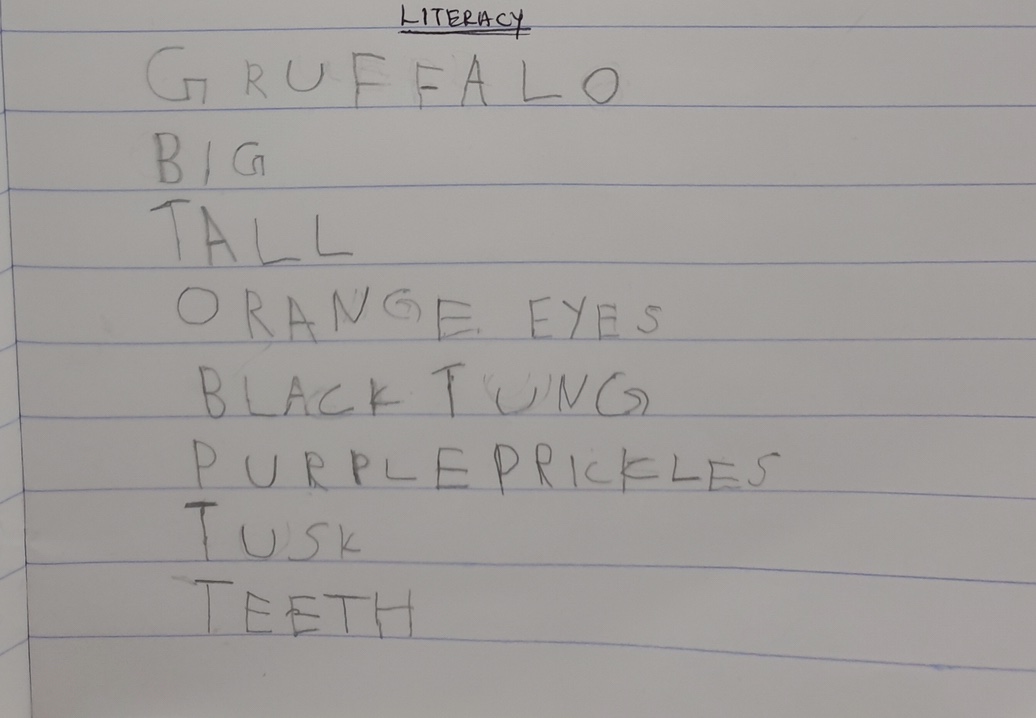 LITERACY
GRUFFALO
BIG
TALL
ORANGE EYES
BLACK TUNG
PURPLE PRICKLES
TUSK
TEETH